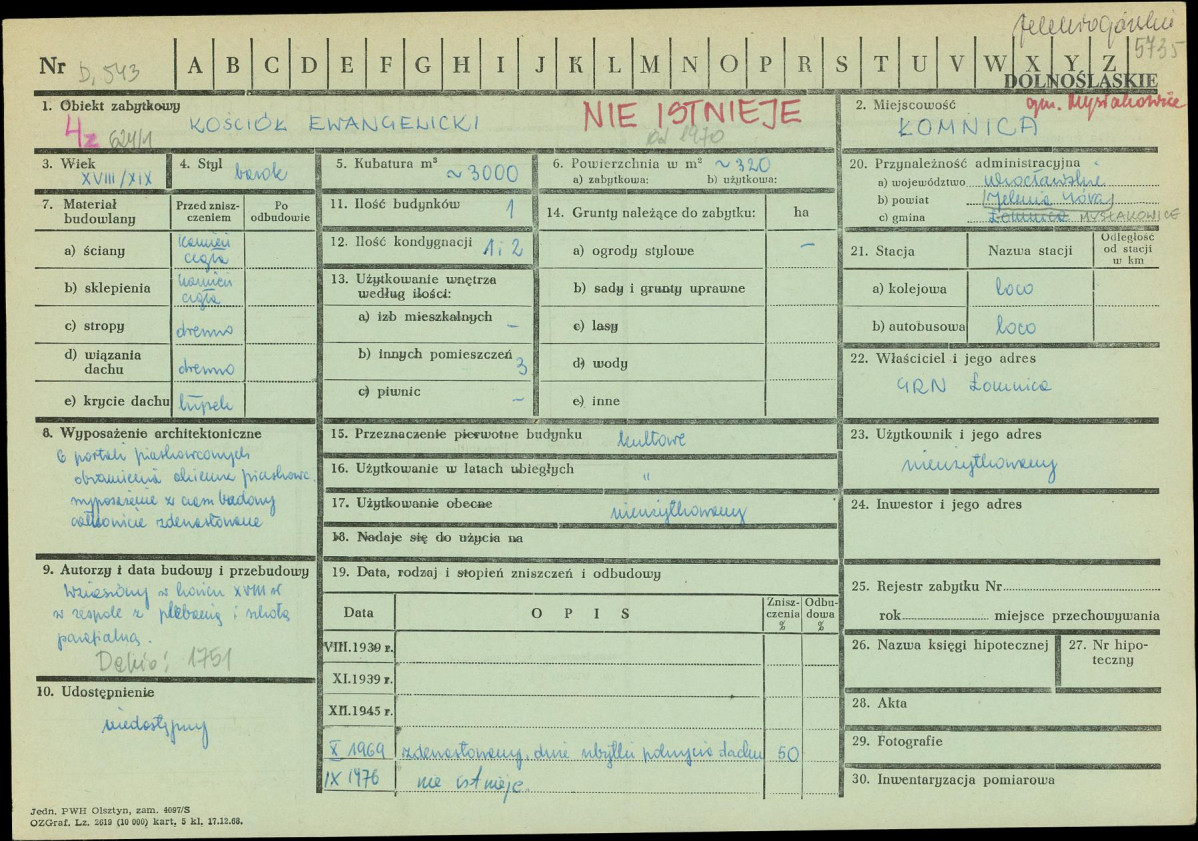 jeleniogórskie
5735
Nr D, 543 A B C D E F G H I J K L M N O P R S T U V W X Y Z
DOLNOŚLĄSKIE
1. Obiekt zabytkowy
4z 624/1
KOŚCIÓŁ EWANGELICKI
NIE ISTNIEJE
od 1970
2. Miejscowość
gm. Mysłakowice
ŁOMNICA
3. Wiek
XVIII/XIX
4. Styl
barok
5. Kubatura m³
~ 3000
6. Powierzchnia w m² ~ 320
a) zabytkowa: b) użytkowa:
7. Materiał budowlany
Przed zniszczeniem
Po odbudowie
a) ściany
kamień
cegła
b) sklepienia
kamień
cegła
c) stropy
drewno
d) wiązania dachu
drewno
e) krycie dachu
łupek
8. Wyposażenie architektoniczne
6 portali piaskowcowych
obramienia okienne piaskowc.
wyposażenie z czasu budowy
całkowicie zdewastowane
9. Autorzy i data budowy i przebudowy
Wzniesiony w końcu XVIII w
w zespole z plebanią i szkołą
parafialną.
Dehio: 1751
10. Udostępnienie
niedostępny
11. Ilość budynków
1
12. Ilość kondygnacji
1 i 2
13. Użytkowanie wnętrza według ilości:
a) izb mieszkalnych
–
b) innych pomieszczeń
3
c) piwnic
–
14. Grunty należące do zabytku:
ha
a) ogrody stylowe
–
b) sady i grunty uprawne
c) lasy
d) wody
e) inne
15. Przeznaczenie pierwotne budynku kultowe
16. Użytkowanie w latach ubiegłych "
17. Użytkowanie obecne nieużytkowany
18. Nadaje się do użycia na
19. Data, rodzaj i stopień zniszczeń i odbudowy
Data
O P I S
Zniszczenia %
Odbudowa %
VIII.1939 r.
XI.1939 r.
XII.1945 r.
X 1969 zdewastowany, duże ubytki pokrycia dachu 50
IX 1976 nie istnieje.
20. Przynależność administracyjna
a) województwo wrocławskie
b) powiat Jelenia Góra
c) gmina Łomnica MYSŁAKOWICE
21. Stacja
Nazwa stacji
Odległość od stacji w km
a) kolejowa
loco
b) autobusowa
loco
22. Właściciel i jego adres
GRN Łomnica
23. Użytkownik i jego adres
nieużytkowany
24. Inwestor i jego adres
25. Rejestr zabytku Nr
rok miejsce przechowywania
26. Nazwa księgi hipotecznej
27. Nr hipoteczny
28. Akta
29. Fotografie
30. Inwentaryzacja pomiarowa
Jedn. PWH Olsztyn, zam. 4097/S
OZGraf. Lz. 2619 (10 000) kart, 5 kl, 17.12.68.